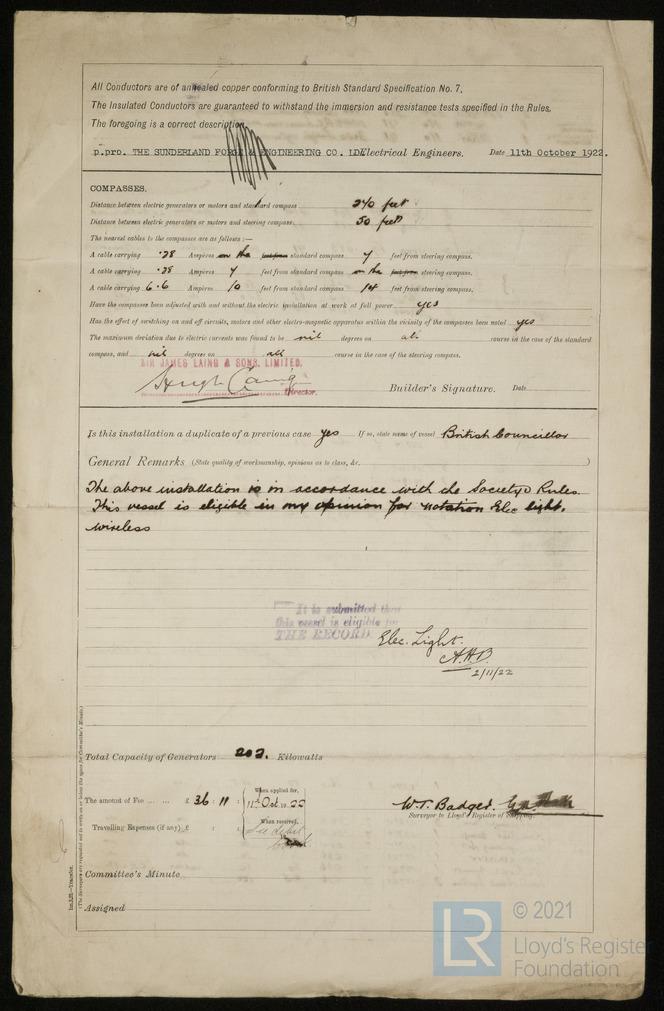 All Conductors are of annealed copper conforming to British Standard Specification No. 7.
The Insulated Conductors are guaranteed to withstand the immersion and resistance tests specified in the Rules.
The foregoing is a correct description.
p.pro. THE SUNDERLAND FORGE & ENGINEERING CO. LD. Electrical Engineers. Date 11th October 1922.
COMPASSES.
Distance between electric generators or motors and standard compass 240 feet
Distance between electric generators or motors and steering compass 50 feet
The nearest cables to the compasses are as follows:—
A cable carrying .28 Ampères in the standard compass 7 feet from steering compass.
A cable carrying .28 Ampères 7 feet from standard compass in the steering compass.
A cable carrying 6.6 Ampères 10 feet from standard compass 14 feet from steering compass.
Have the compasses been adjusted with and without the electric installation at work at full power yes
Has the effect of switching on and off circuits, motors and other electro-magnetic apparatus within the vicinity of the compasses been noted yes
The maximum deviation due to electric currents was found to be nil degrees on all course in the case of the standard
compass, and nil degrees on all course in the case of the steering compass.
SIR JAMES LAING & SONS. LIMITED.
Hugh Laing
Director. Builder's Signature. Date
Is this installation a duplicate of a previous case yes If so, state name of vessel British Councillor
General Remarks (State quality of workmanship, opinions as to class, &c. )
The above installation is in accordance with the Society's Rules.
This vessel is eligible in my opinion for notation Elec light.
Wireless
It is submitted that
this vessel is eligible for
THE RECORD. Elec. Light.
A.H.B.
2/11/22
Total Capacity of Generators 202. Kilowatts
The amount of Fee ... ... £ 36 : 11 : When applied for, 11th Oct 1922
Travelling Expenses (if any) £ : : When received,
W.T. Badger.
Surveyor to Lloyd's Register of Shipping.
Committee's Minute
Assigned
Im.3,21.—Transfer.
(The Surveyors are requested not to write on or below the space for Committee's Minute.)
LR © 2021
Lloyd's Register
Foundation